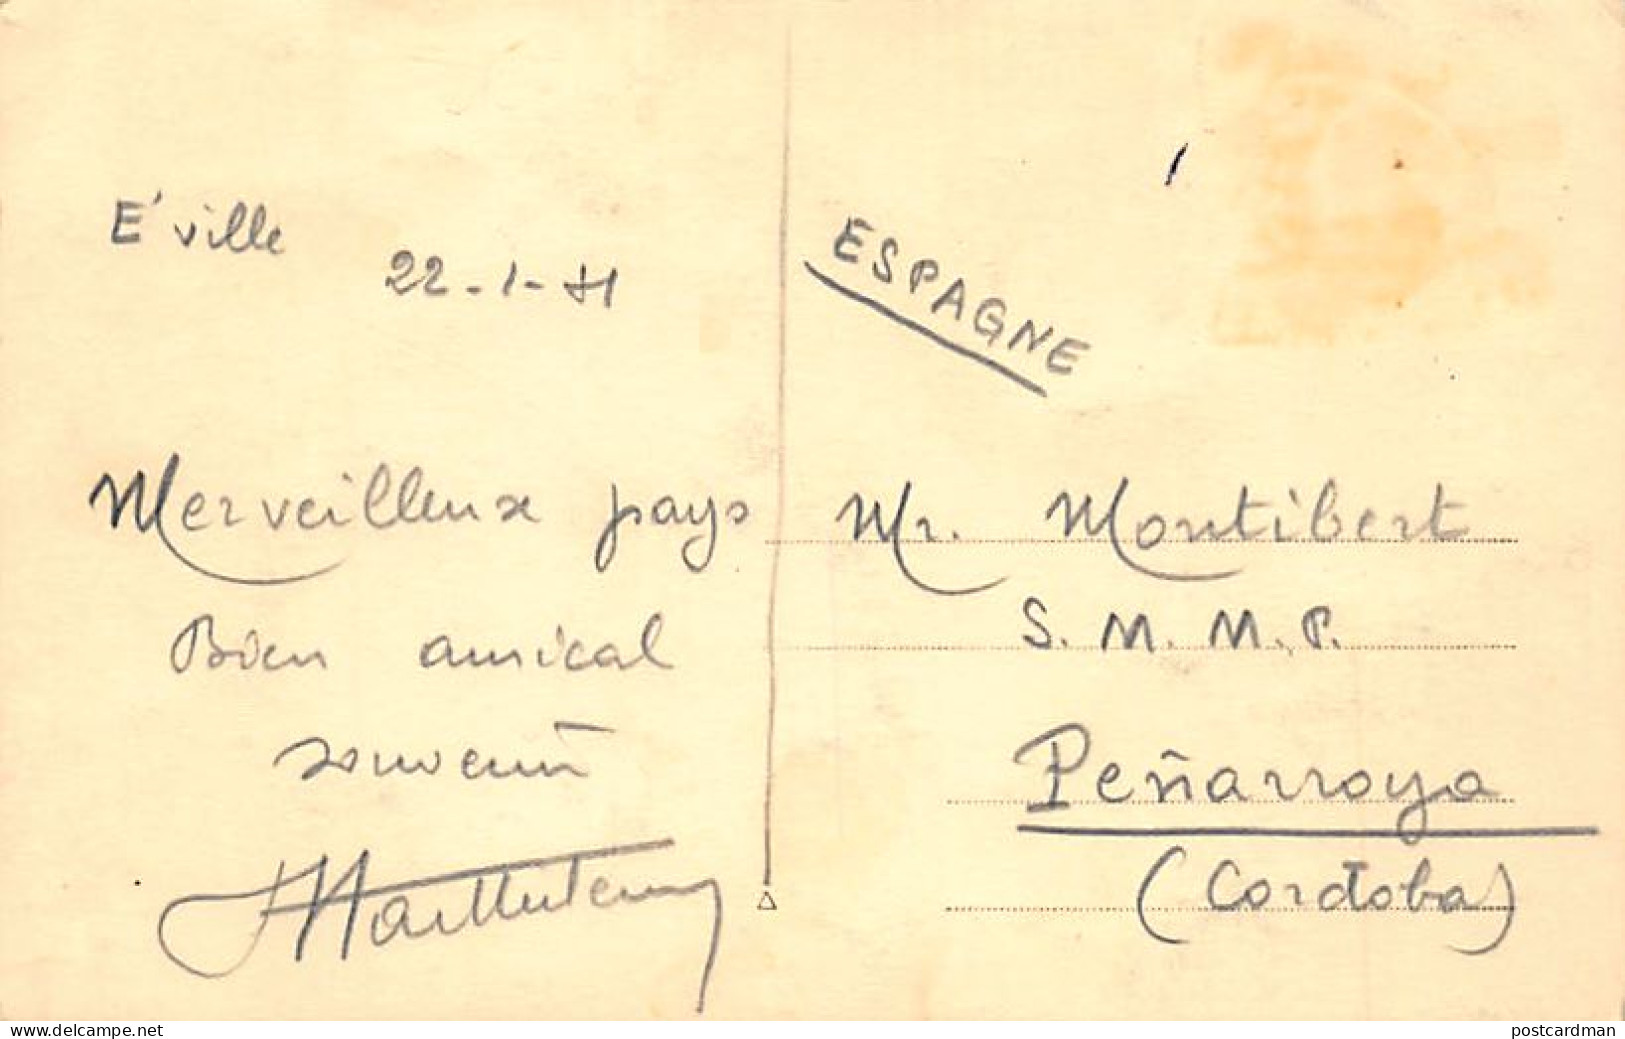 E'ville
22-1-
Merveilleux pays
Bien amical
souvenir
ESPAGNE
Mr. Montibert
S. M. M. P.
Peñarroya
(Cordoba)
www.delcampe.net
postcardman